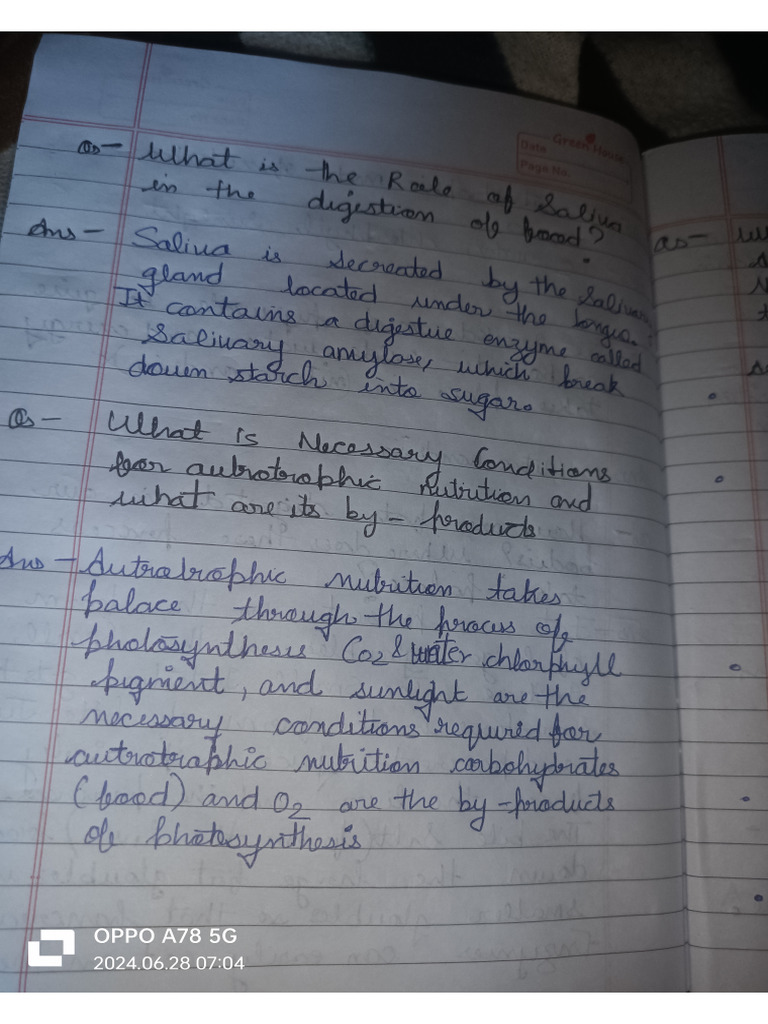 Green House
Date
Page No.
Qs- What is the Role of Saliva
in the digestion of food?
Ans- Saliva is Secreated by the Salivary
gland located under the tongue.
It contains a digestue enzyme called
Salivary amylose, which break
down starch into sugar.
Qs- What is Necessary Conditions
for autrotrophic Nutrition and
what are its by-products
Ans- Autratrophic nutrition takes
palace through the process of
photosynthesis Co2 & water chlorphyll
pigment, and sunlight are the
necessary conditions required for
autrotraphic nutrition carbohydrates
(food) and O2 are the by-products
of photosynthesis
Qs-
OPPO A78 5G
2024.06.28 07:04